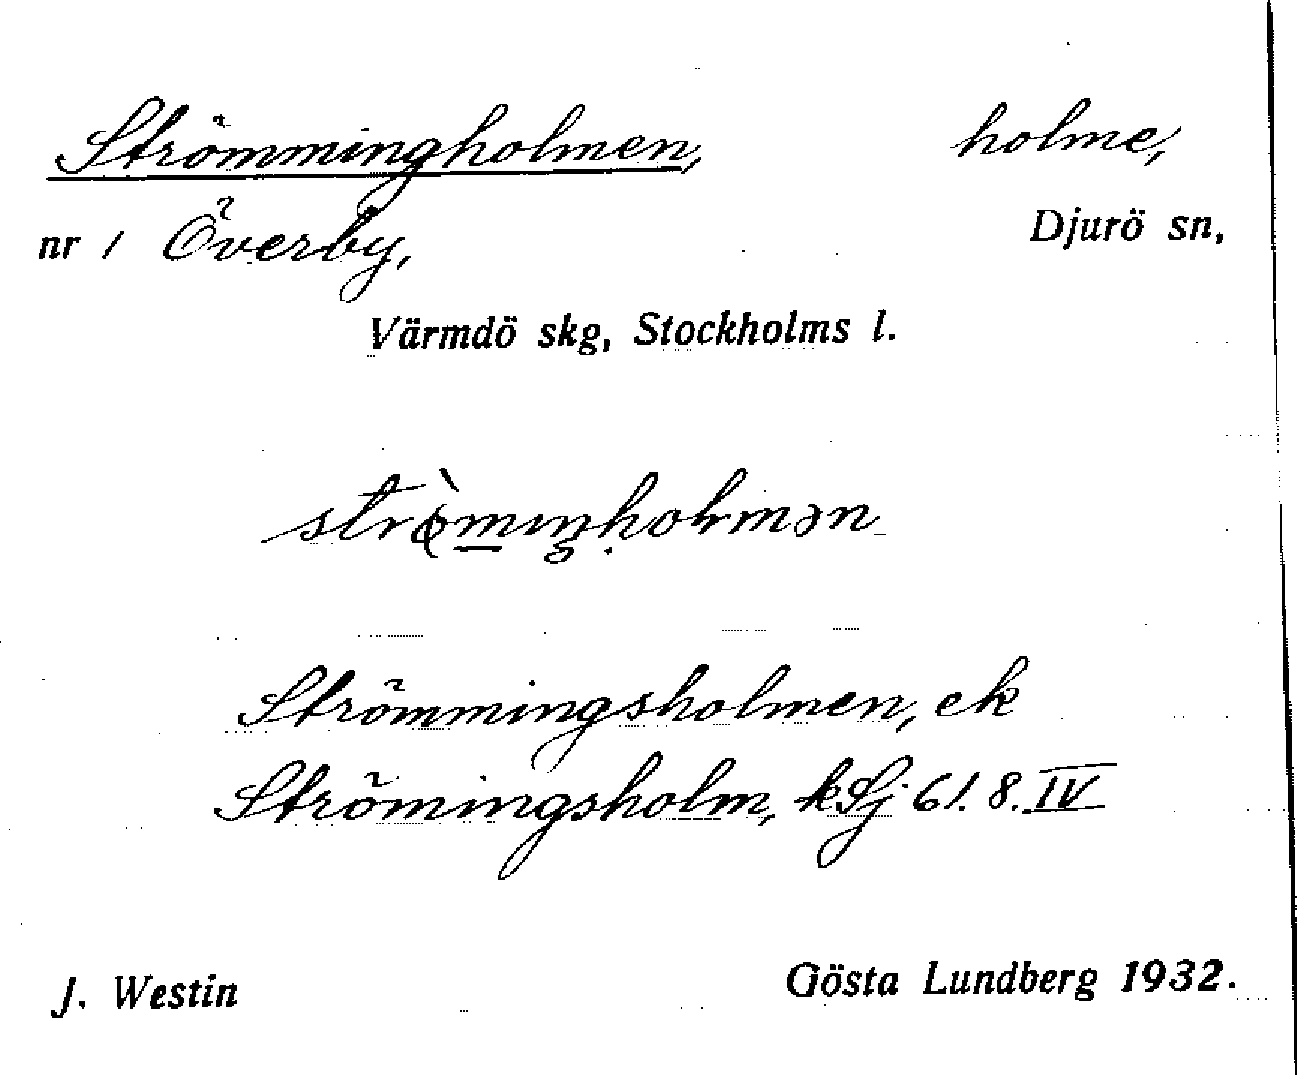 Strömmingholmen, holme,
nr 1 Överby, Djurö sn,
Värmdö skg, Stockholms l.
strø̀miŋholmən
Strömmingsholmen, ek
Strömingsholm, kSj 61.8.IV
J. Westin Gösta Lundberg 1932.